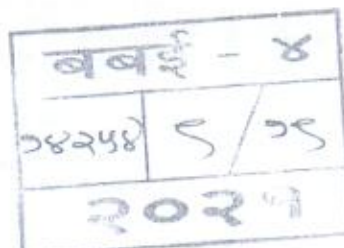 बबई - ४
१४२५४ ९/१९
२०२१